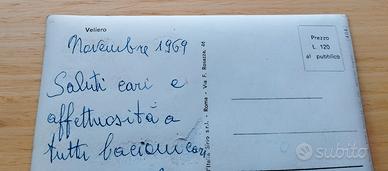 Veliero
Novembre 1969
Saluti cari e
affettuosità a
tutti bacioni con
Prezzo
L. 120
al pubblico
Roma - Via F. Rosazza, 44
subito